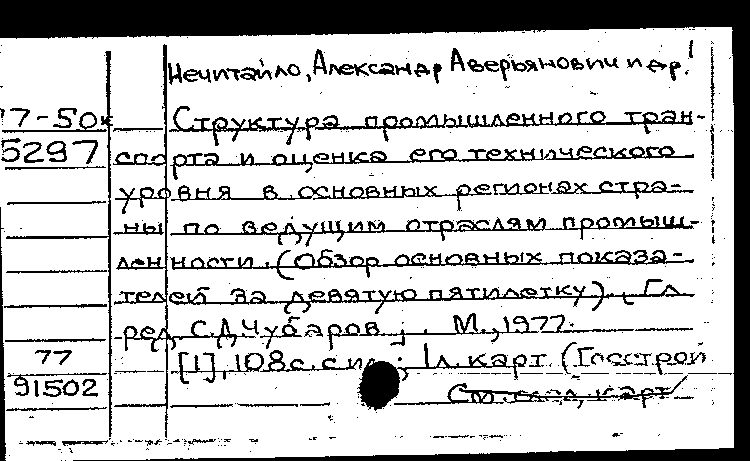 Нечитайло, Александр Аверьянович и др.
77-50к
5297
Структура промышленного тран-
спорта и оценка его технического
уровня в основных регионах стра-
ны по ведущим отраслям промыш-
ленности. (Обзор основных показа-
телей за девятую пятилетку). Гл.
ред. С.Д. Чубаров. М., 1977.
77
91502
[1], 108с. с ил.; 1л. карт (Госстрой
См. след. карт